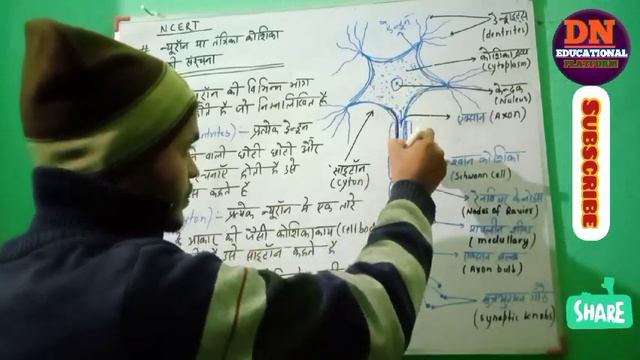 NCERT
न्यूरॉन या तंत्रिका कोशिका
की संरचना
न्यूरॉन की विभिन्न भाग
होते है जो निम्नलिखित है
प्रत्येक डेन्ड्रान
वाली छोटी छोटी और
होती है उसे
कहते है
प्रत्येक न्यूरॉन में एक तारे
के आकार की जैसी कोशिकाकाय (cell body
उसे साइटॉन कहते है
डेन्ड्राइट्स
(dentrites)
कोशिका द्रव्य
(cytoplasm)
केन्द्रक
(Nuleus)
एक्सान (Axon)
साइटॉन
(cyton)
श्वान कोशिका
(Schwann cell)
(Nodes of Ravier)
(medullary)
(Axon bulb)
(synaptic knobs)
DN
EDUCATIONAL
PLATFORM
SUBSCRIBE
SHARE